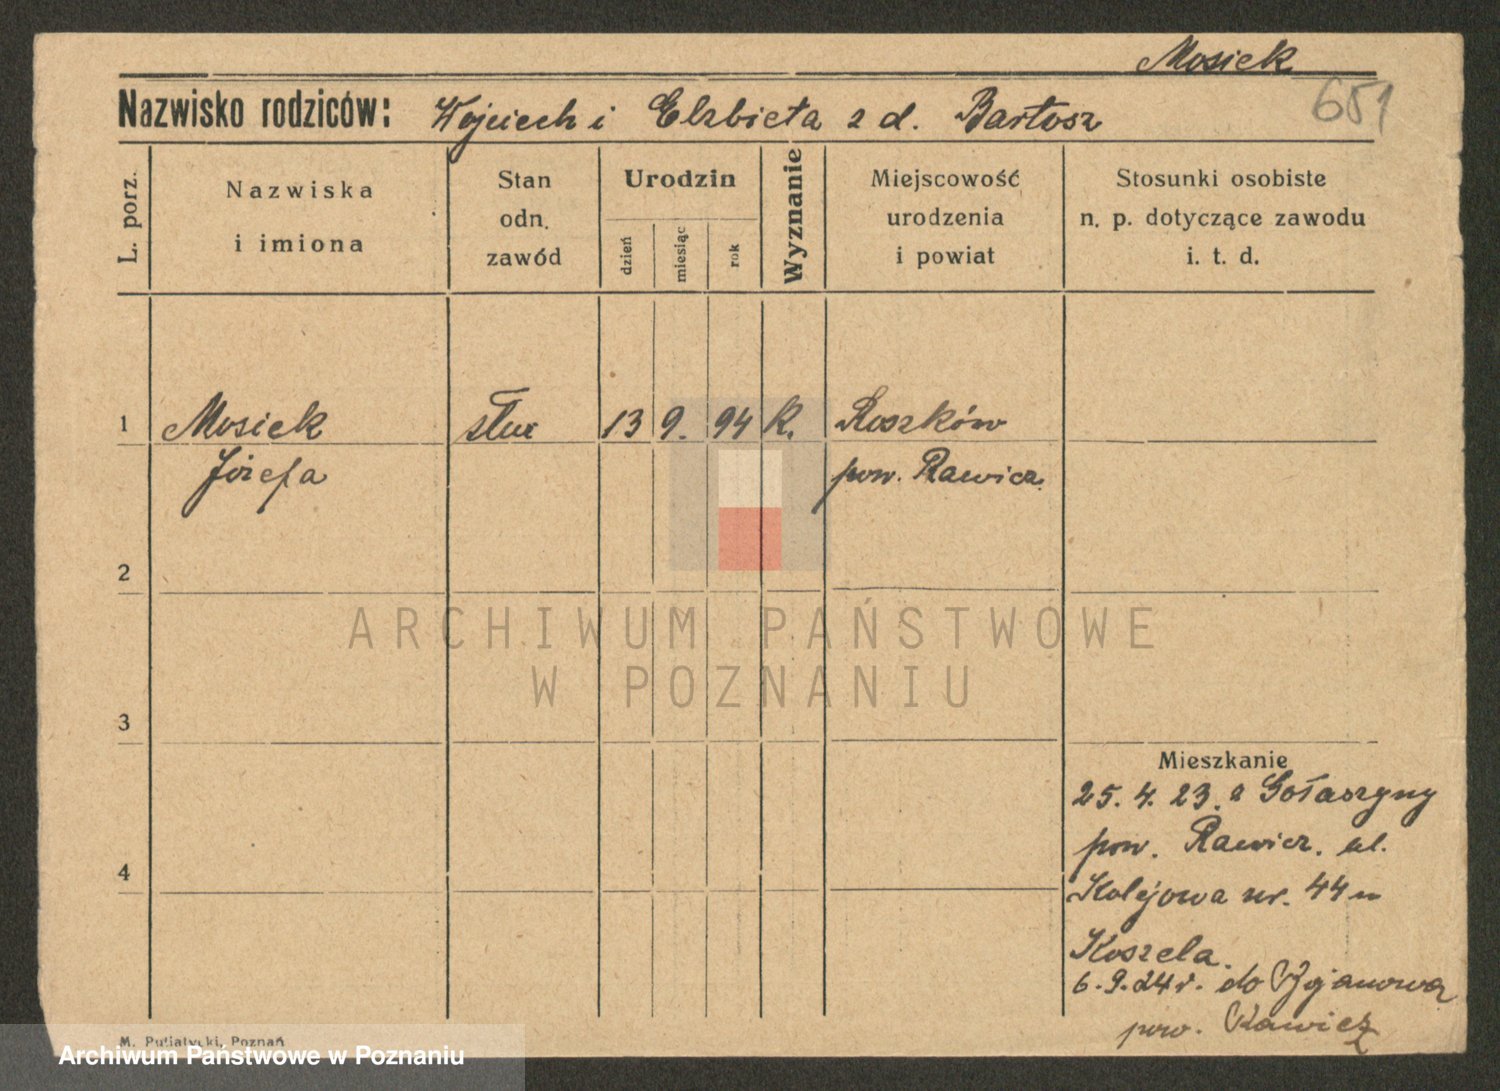 Mosiek
651
Nazwisko rodziców: Wojciech i Elzbieta z d. Bartosz
L. porz.
Nazwiska
i imiona
Stan
odn.
zawód
Urodzin
dzień
miesiąc
rok
Wyznanie
Miejscowość
urodzenia
i powiat
Stosunki osobiste
n. p. dotyczące zawodu
i. t. d.
1 Mosiek służ 13 9. 94 k. Roszków
Józefa pow. Rawicz.
2
ARCHIWUM PAŃSTWOWE
W POZNANIU
3
Mieszkanie
25. 4. 23. z Gołaszyny
pow. Rawicz. ul.
4
Kolejowa nr. 44 u
Koszela.
6. 9. 24 r. do
pow. Rawicz
M. Putiatycki, Poznań
Archiwum Państwowe w Poznaniu